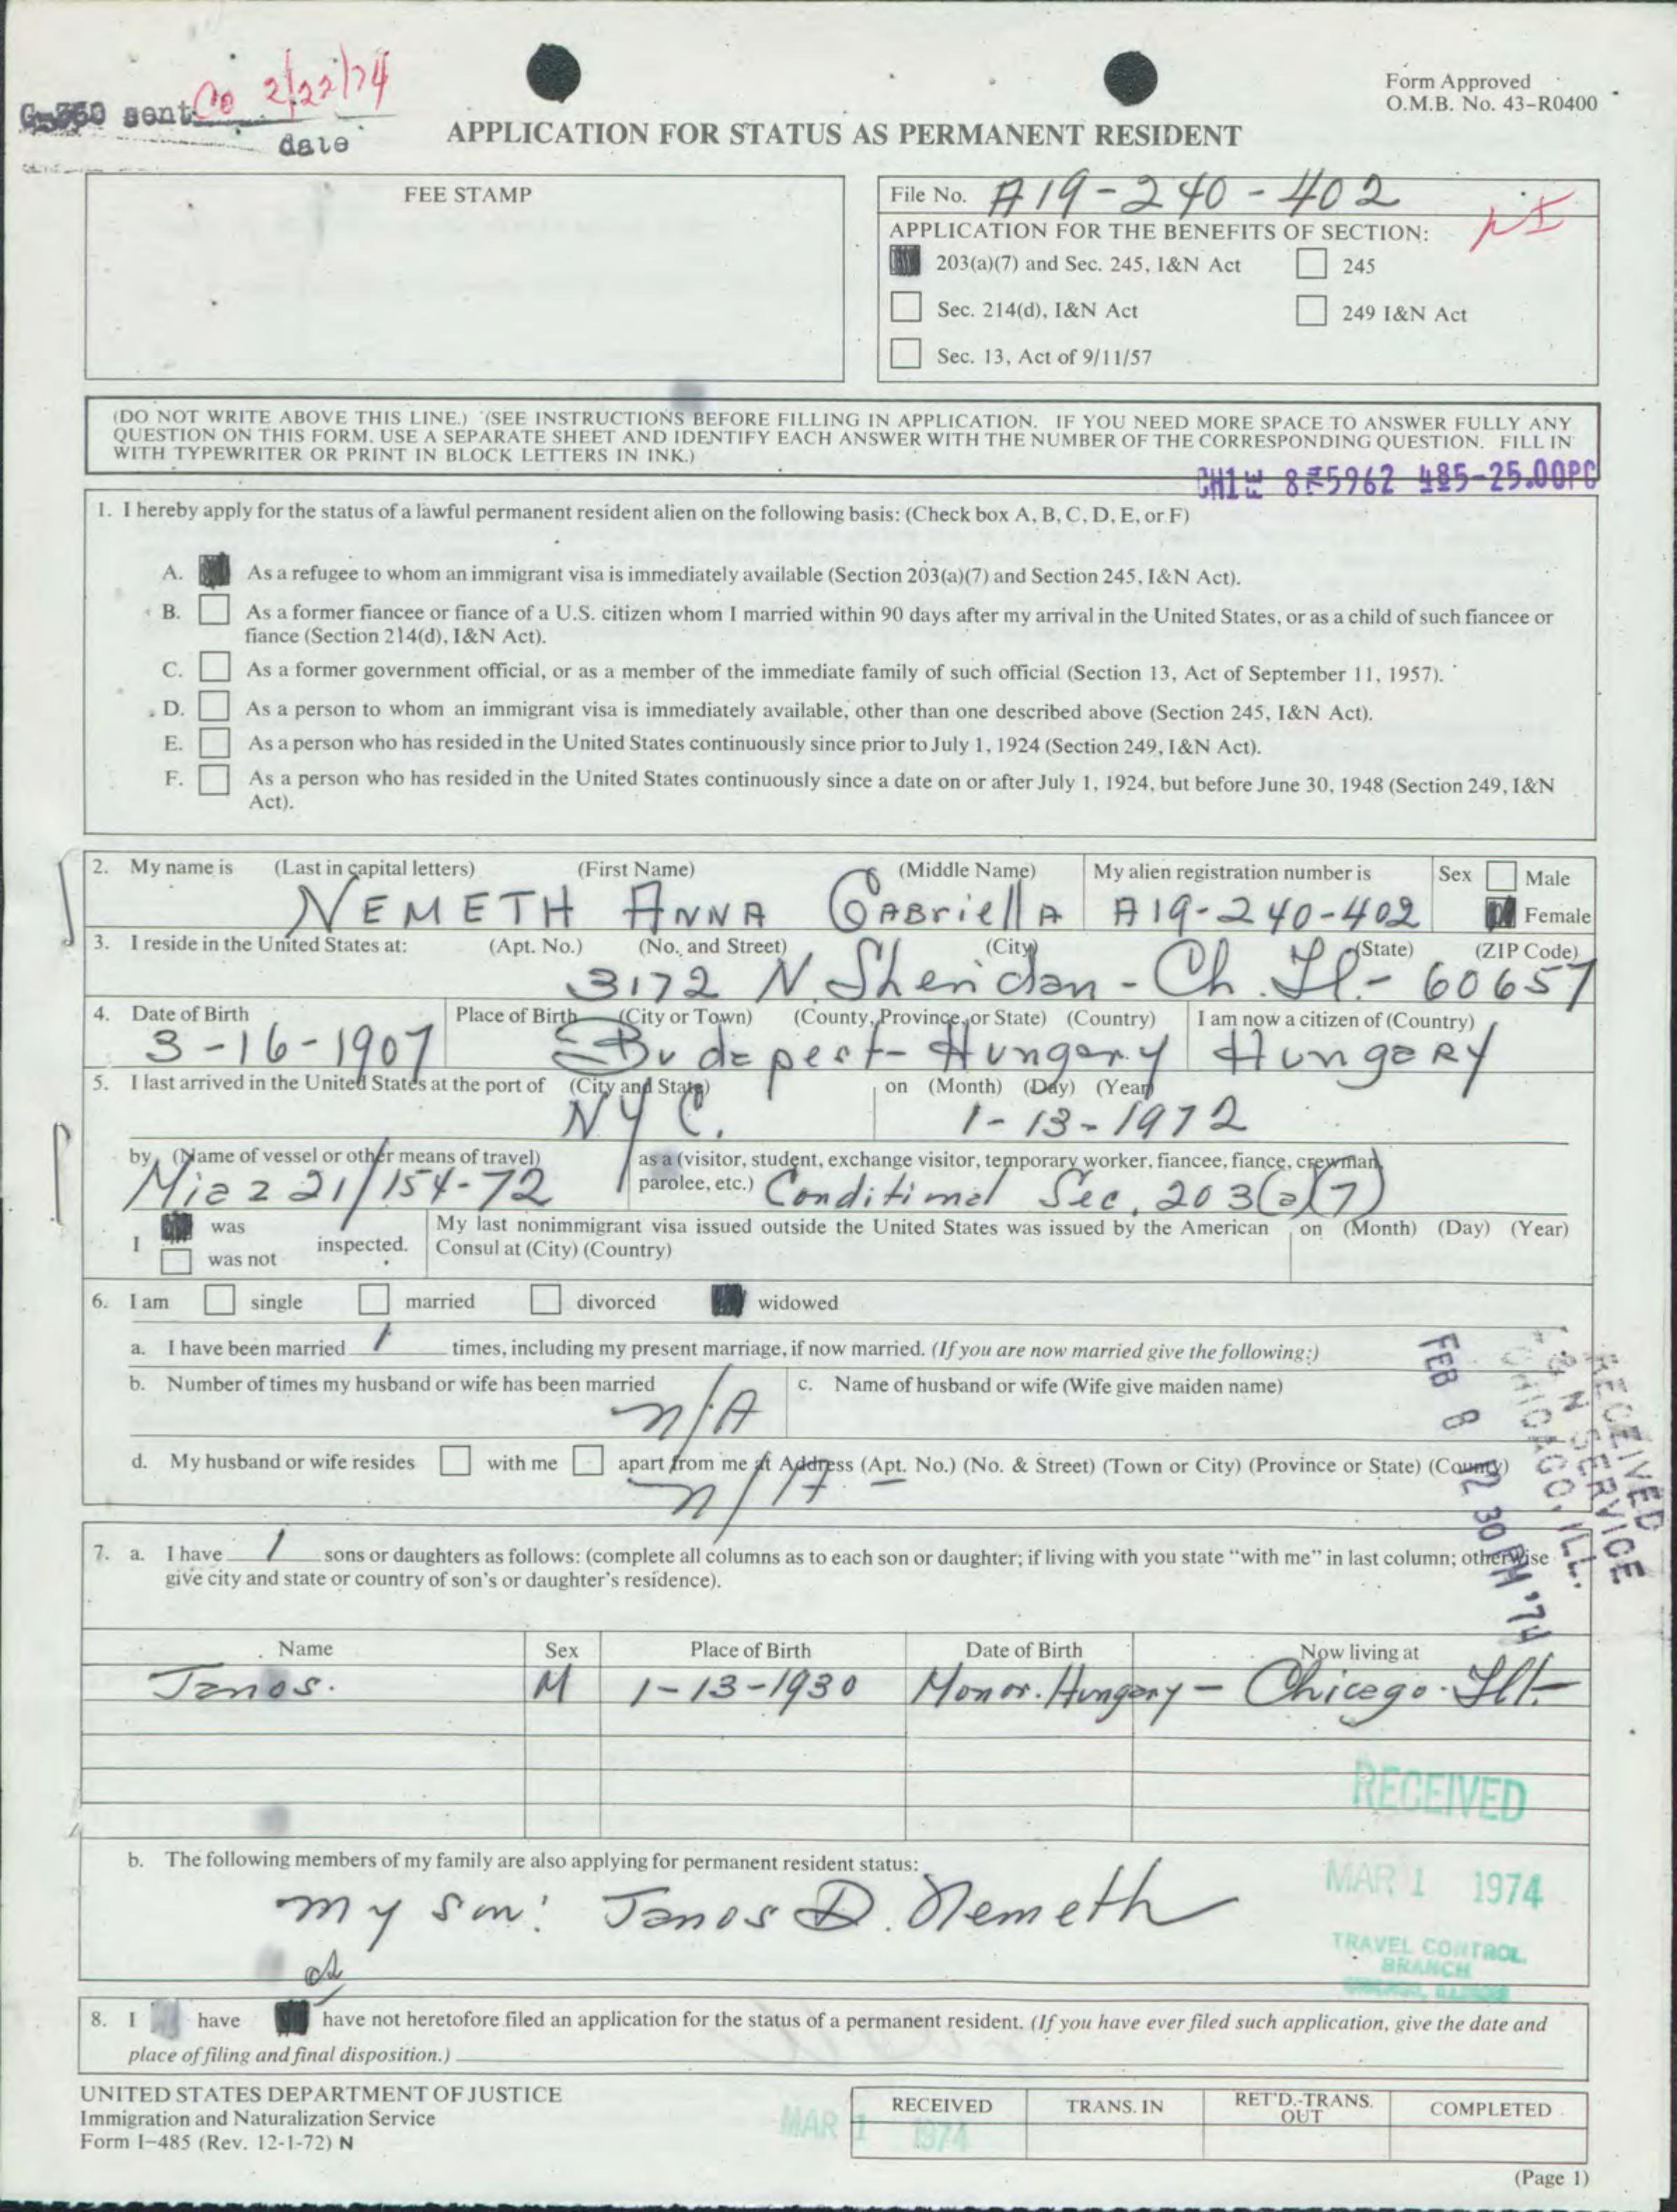 G-360 sent Co 2/22/74
date
Form Approved
O.M.B. No. 43-R0400
APPLICATION FOR STATUS AS PERMANENT RESIDENT
FEE STAMP
File No. A19-240-402
APPLICATION FOR THE BENEFITS OF SECTION:
203(a)(7) and Sec. 245, I&N Act 245
Sec. 214(d), I&N Act 249 I&N Act
Sec. 13, Act of 9/11/57
(DO NOT WRITE ABOVE THIS LINE.) (SEE INSTRUCTIONS BEFORE FILLING IN APPLICATION. IF YOU NEED MORE SPACE TO ANSWER FULLY ANY
QUESTION ON THIS FORM. USE A SEPARATE SHEET AND IDENTIFY EACH ANSWER WITH THE NUMBER OF THE CORRESPONDING QUESTION. FILL IN
WITH TYPEWRITER OR PRINT IN BLOCK LETTERS IN INK.)
485-25.00PC
1. I hereby apply for the status of a lawful permanent resident alien on the following basis: (Check box A, B, C, D, E, or F)
A. As a refugee to whom an immigrant visa is immediately available (Section 203(a)(7) and Section 245, I&N Act).
B. As a former fiancee or fiance of a U.S. citizen whom I married within 90 days after my arrival in the United States, or as a child of such fiancee or
fiance (Section 214(d), I&N Act).
C. As a former government official, or as a member of the immediate family of such official (Section 13, Act of September 11, 1957).
D. As a person to whom an immigrant visa is immediately available, other than one described above (Section 245, I&N Act).
E. As a person who has resided in the United States continuously since prior to July 1, 1924 (Section 249, I&N Act).
F. As a person who has resided in the United States continuously since a date on or after July 1, 1924, but before June 30, 1948 (Section 249, I&N
Act).
2. My name is (Last in capital letters) (First Name) (Middle Name) My alien registration number is Sex Male
NEMETH ANNA GABriellA A19-240-402 Female
3. I reside in the United States at: (Apt. No.) (No. and Street) (City) (State) (ZIP Code)
3172 N. Sheridan - Ch. Il. - 60657
4. Date of Birth Place of Birth (City or Town) (County, Province, or State) (Country) I am now a citizen of (Country)
3-16-1907 Budapest - Hungary HungaRy
5. I last arrived in the United States at the port of (City and State) on (Month) (Day) (Year)
NYC. 1-13-1972
by (Name of vessel or other means of travel) as a (visitor, student, exchange visitor, temporary worker, fiancee, fiance, crewman,
parolee, etc.)
Miaz 21/154-72 Conditional Sec. 203(a)(7)
I was My last nonimmigrant visa issued outside the United States was issued by the American on (Month) (Day) (Year)
was not inspected. Consul at (City) (Country)
6. I am single married divorced widowed
a. I have been married 1 times, including my present marriage, if now married. (If you are now married give the following:)
b. Number of times my husband or wife has been married c. Name of husband or wife (Wife give maiden name)
n/A
d. My husband or wife resides with me apart from me at Address (Apt. No.) (No. & Street) (Town or City) (Province or State) (County)
n/A -
FEB 8 2 30 PM '74
RECEIVED
I & N SERVICE
CHICAGO, ILL.
7. a. I have 1 sons or daughters as follows: (complete all columns as to each son or daughter; if living with you state "with me" in last column; otherwise
give city and state or country of son's or daughter's residence).
Name Sex Place of Birth Date of Birth Now living at
Janos. M 1-13-1930 Monor. Hungary - Chicago. Ill-
RECEIVED
b. The following members of my family are also applying for permanent resident status:
my son: Janos D. Nemeth
MAR 1 1974
TRAVEL CONTROL
BRANCH
8. I have have not heretofore filed an application for the status of a permanent resident. (If you have ever filed such application, give the date and
place of filing and final disposition.)
UNITED STATES DEPARTMENT OF JUSTICE
Immigration and Naturalization Service
Form I-485 (Rev. 12-1-72) N
RECEIVED TRANS. IN RET'D.-TRANS. OUT COMPLETED
MAR 1 1974
(Page 1)